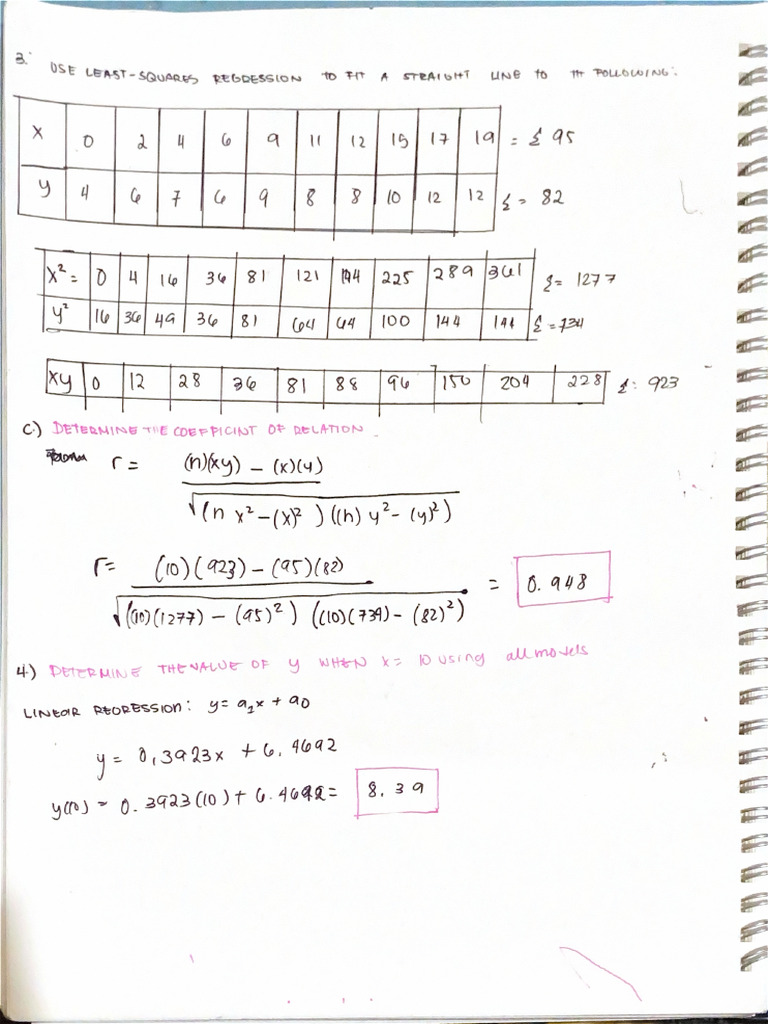 3. USE LEAST-SQUARES REGRESSION TO FIT A STRAIGHT LINE TO TH FOLLOWING:
X 0 2 4 6 9 11 12 15 17 19 = Σ 95
y 4 6 7 6 9 8 8 10 12 12 Σ = 82
X² = 0 4 16 36 81 121 144 225 289 361 Σ = 1277
y² 16 36 49 36 81 64 64 100 144 144 Σ = 734
Xy 0 12 28 36 81 88 96 150 204 228 Σ: 923
C.) DETERMINE THE COEFFICINT OF RELATION
r = (n)(xy) - (x)(y)
√(n x² - (x)²) ((n) y² - (y)²)
r = (10)(923) - (95)(82)
√((10)(1277) - (95)²) ((10)(734) - (82)²) = 0.948
4.) DETERMINE THE VALUE OF y WHEN x = 10 using all models
LINEAR REGRESSION: y = a₁x + a0
y = 0,3923x + 6.4692
y(10) = 0.3923(10) + 6.4692 = 8.39